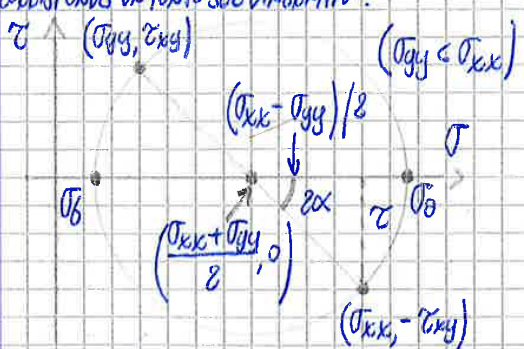 τ
(σyy, τxy)
(σyy < σxx)
(σxx - σyy)/2
σ
σb
2α
τ
σa
(σxx + σyy / 2, 0)
(σxx, - τxy)